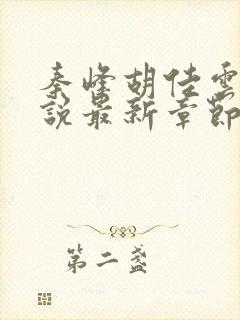 秦峰胡佳雲
說最新章節
第二盞